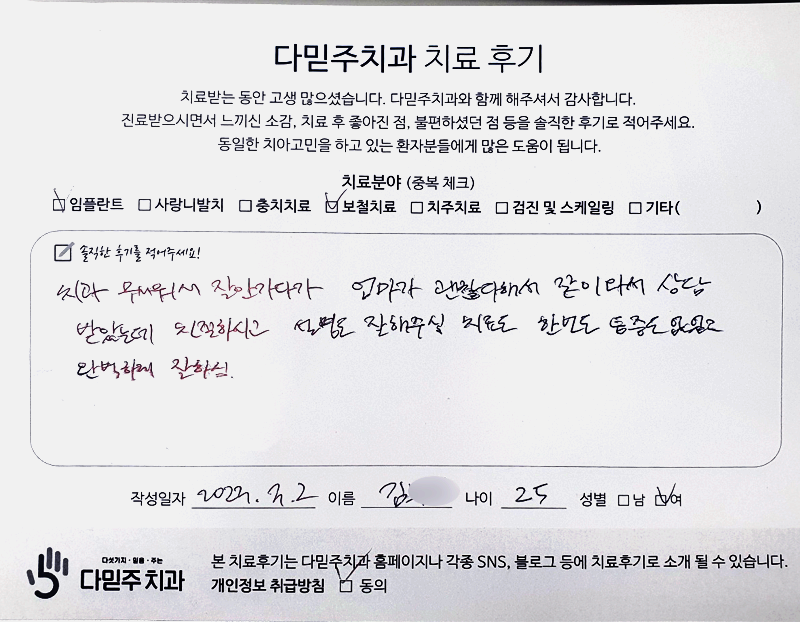 다믿주치과 치료 후기
치료받는 동안 고생 많으셨습니다. 다믿주치과와 함께 해주셔서 감사합니다.
진료받으시면서 느끼신 소감, 치료 후 좋아진 점, 불편하셨던 점 등을 솔직한 후기로 적어주세요.
동일한 치아고민을 하고 있는 환자분들에게 많은 도움이 됩니다.
치료분야 (중복 체크)
임플란트 사랑니발치 충치치료 보철치료 치주치료 검진 및 스케일링 기타( )
솔직한 후기를 적어주세요!
치과 무서워서 잘안가다가 엄마가 괜찮다해서 같이와서 상담
받았는데 친절하시고 설명도 잘해주심 치료도 한번도 통증도 없었고
완벽하게 잘하심.
작성일자 이름 김 나이 25 성별 남 여
다섯가지·믿음·주는
다믿주 치과
본 치료후기는 다믿주치과 홈페이지나 각종 SNS, 블로그 등에 치료후기로 소개 될 수 있습니다.
개인정보 취급방침 동의